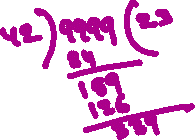 42 ) 9999 ( 23
84
159
126
339